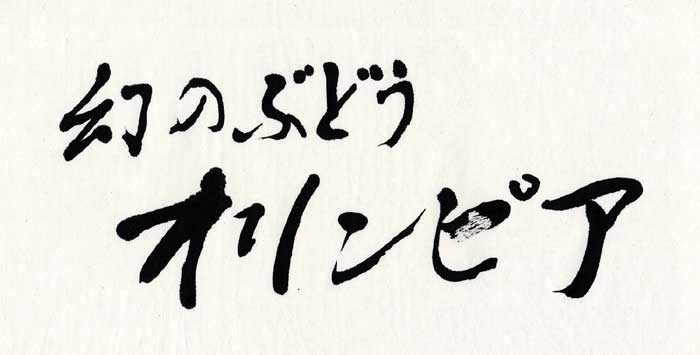 幻のぶどう
オリンピア